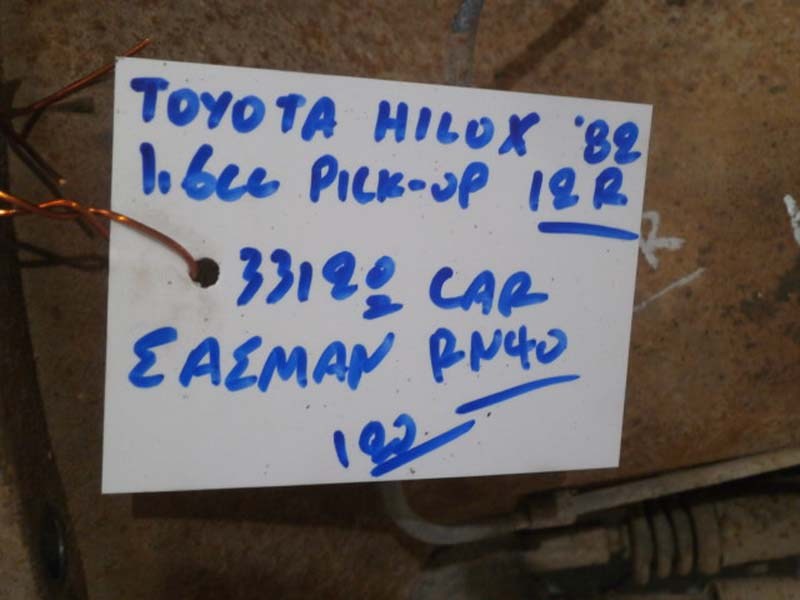 TOYOTA HILUX '82
1.6cc PICK-UP 12R
33120 CAR
ΣΑΣΜΑΝ RN40
120